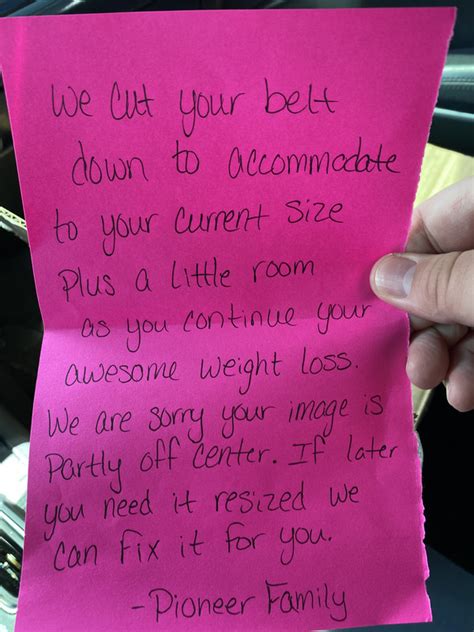 We cut your belt
down to accommodate
to your current size
Plus a little room
as you continue your
awesome weight loss.
We are sorry your image is
Partly off center. If later
you need it resized we
can fix it for you.
-Pioneer Family